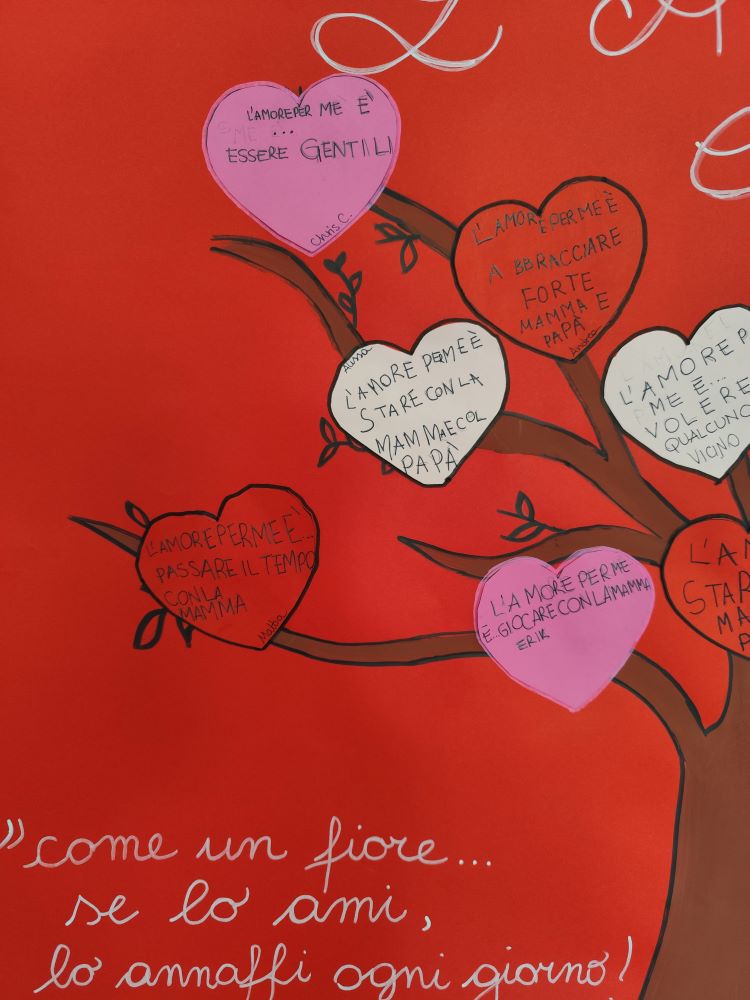 L'A
L'AMORE PER ME È
...
ESSERE GENTILI
Chris C.
L'AMORE PER ME È
ABBRACCIARE
FORTE
MAMMA E
PAPÀ
Andrea
Alissa
L'AMORE PER ME È
STARE CON LA
MAMMA E COL
PAPÀ
L'AMORE P
ME È...
VOLERE
QUALCUNO
VICINO
L'AMORE PER ME È...
PASSARE IL TEMPO
CON LA
MAMMA
L'AMORE PER ME
È...GIOCARE CON LA MAMMA
ERIK
L'AM
STAR
MA
P
"come un fiore...
se lo ami,
lo annaffi ogni giorno!